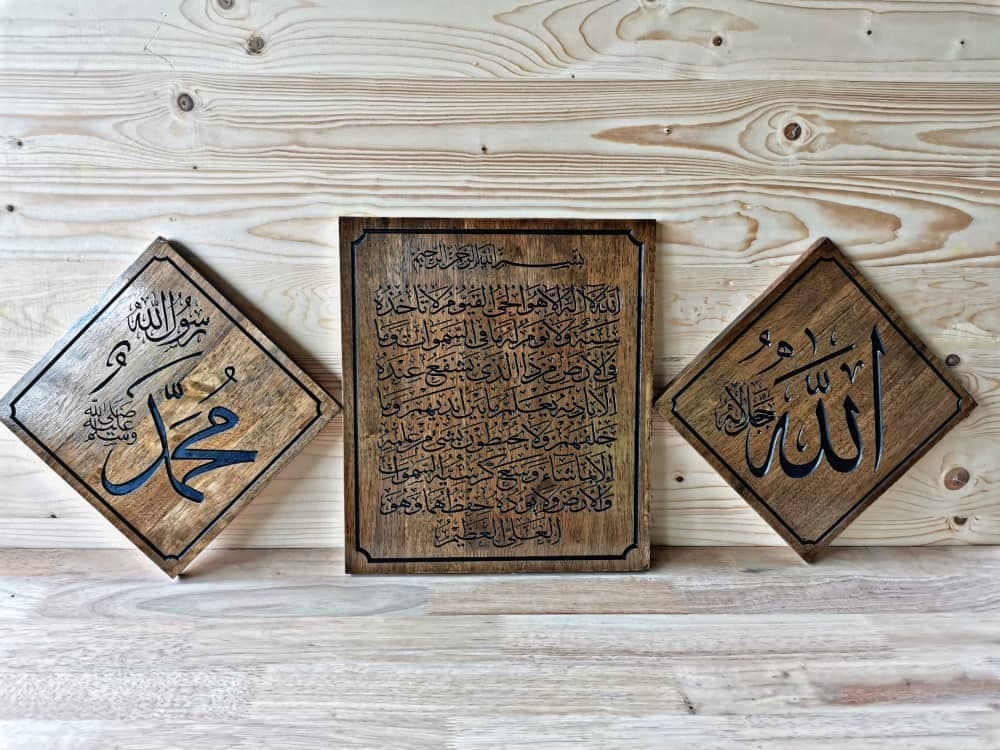 الله
جل جلاله
بسم الله الرحمن الرحيم
الله لا اله الا هو الحي القيوم لا تأخذه
سنة ولا نوم له ما في السموات وما
في الارض من ذا الذي يشفع عنده
الا باذنه يعلم ما بين ايديهم وما
خلفهم ولا يحيطون بشيء من علمه
الا بما شاء وسع كرسيه السموات
والارض ولا يؤده حفظهما وهو
العلي العظيم
رسول الله
محمد
صلى الله
عليه
وسلم